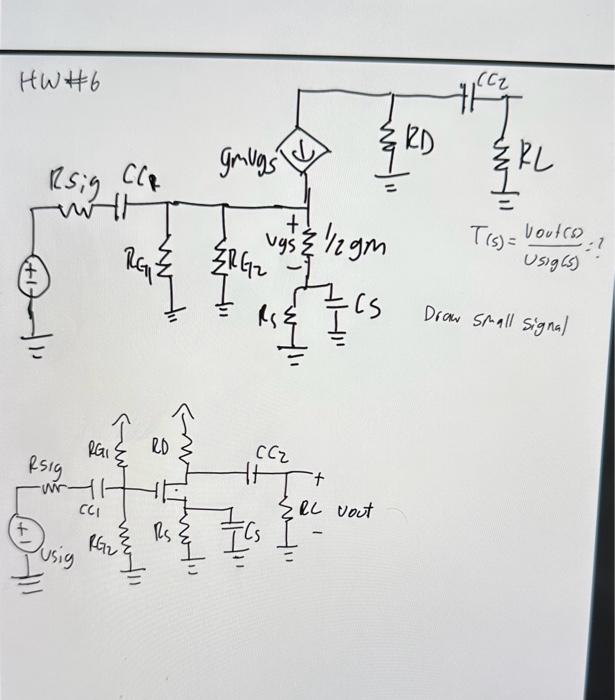 HW#6
CC2
gmvgs
RD
RL
Rsig CC1
RG1
RG2
+
vgs
-
1/2gm
T(s) = Vout(s) / Vsig(s) = ?
+
-
Rs
CS
Draw small signal
RG1
RD
CC2
Rsig
+
CC1
RL
vout
-
+
-
Vsig
RG2
Rs
Cs